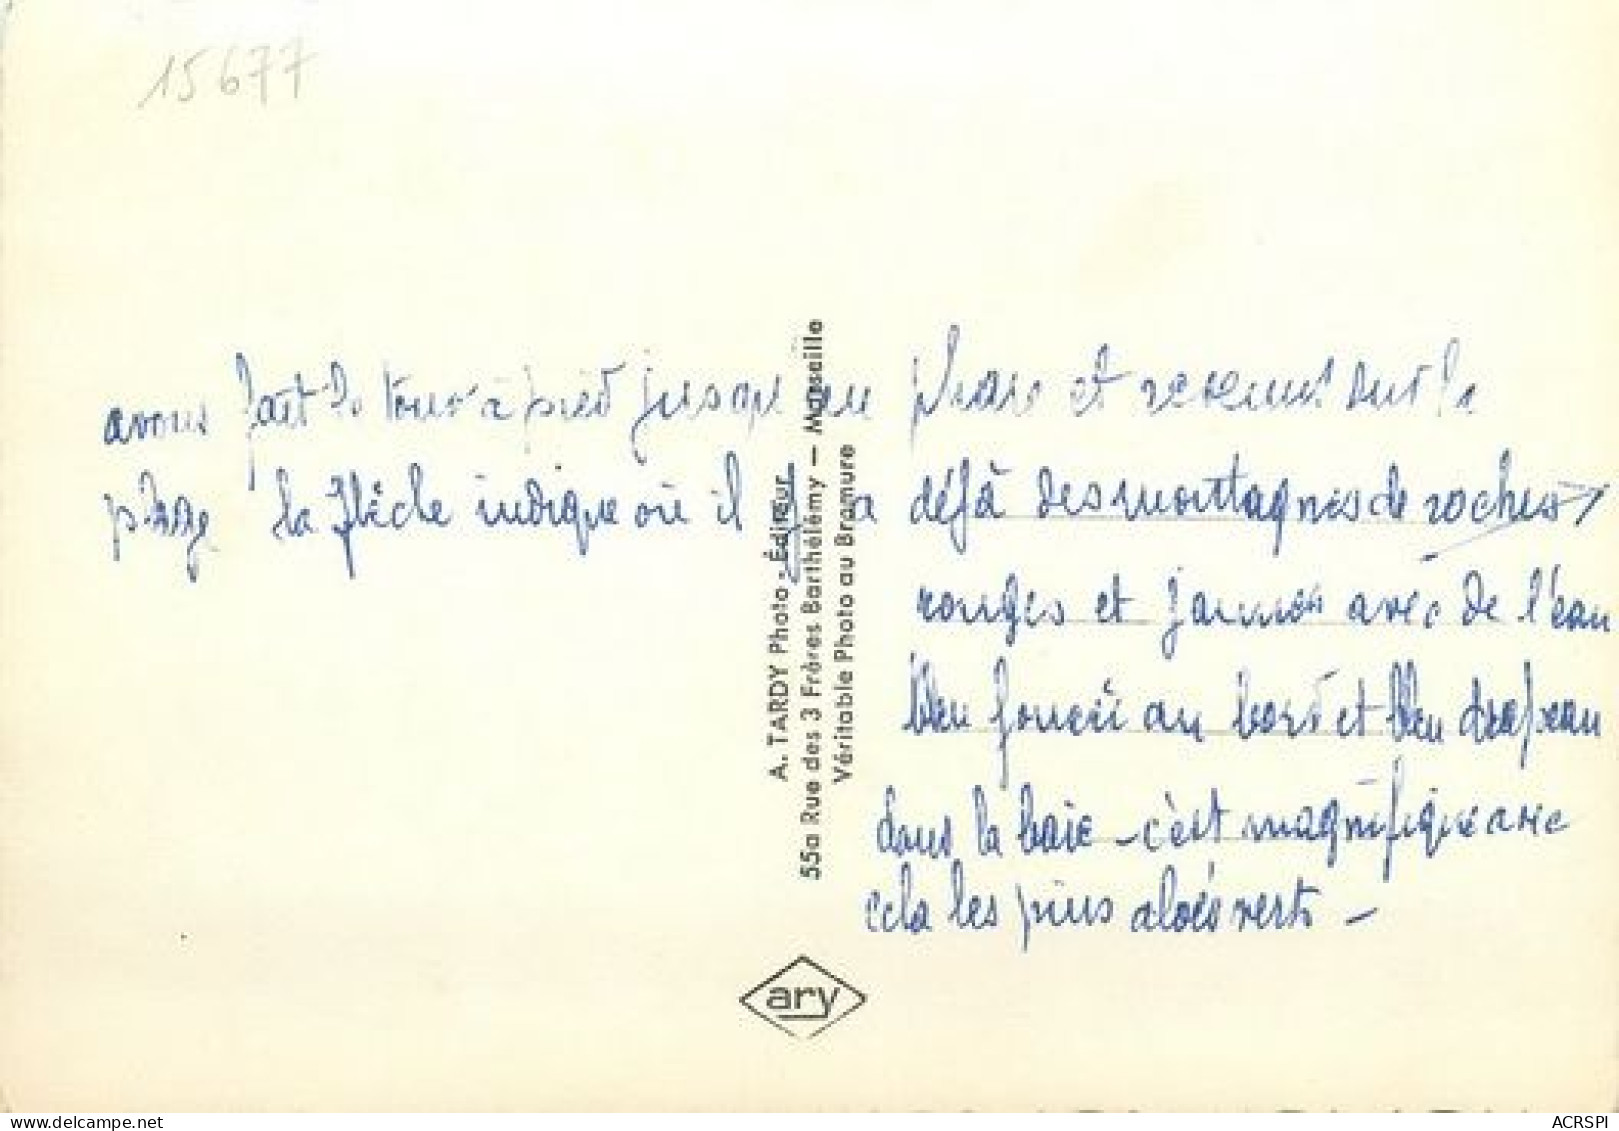 15677
avons fait le tour à pied jusqu'au phare et revenus sur la
plage la flèche indique où il y a déjà des montagnes de roches
rouges et jaunes avec de l'eau
bleu foncé au bord et bleu drapeau
dans la baie - c'est magnifique avec
cela les pins aloès verts -
A. TARDY Photo-Éditeur
55a Rue des 3 Frères Barthélémy — Marseille
Véritable Photo au Bromure
ary
ACRSPI